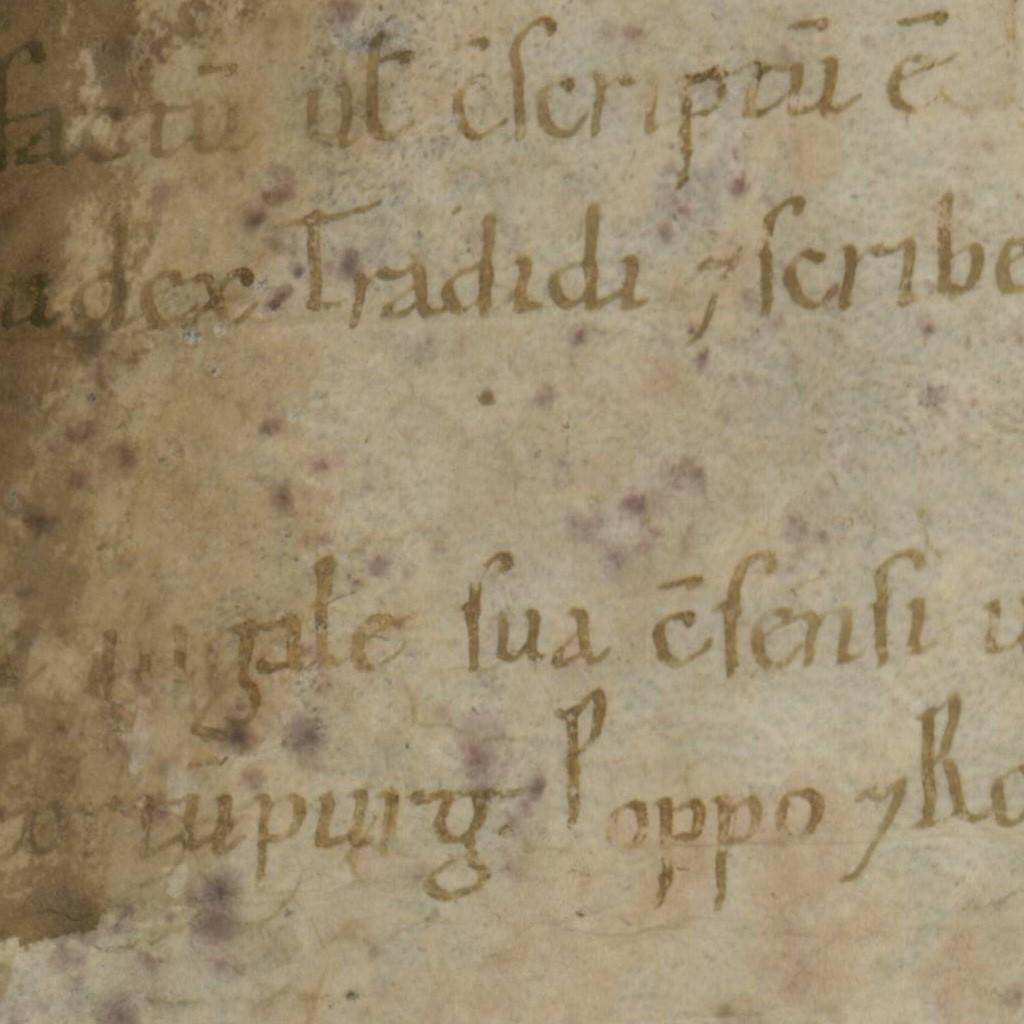 factū ut c̄scriptū ē
udex Tradidi ⁊ scribe
iugale sua c̄sensi u
rtūpurg. Poppo ⁊ Ro